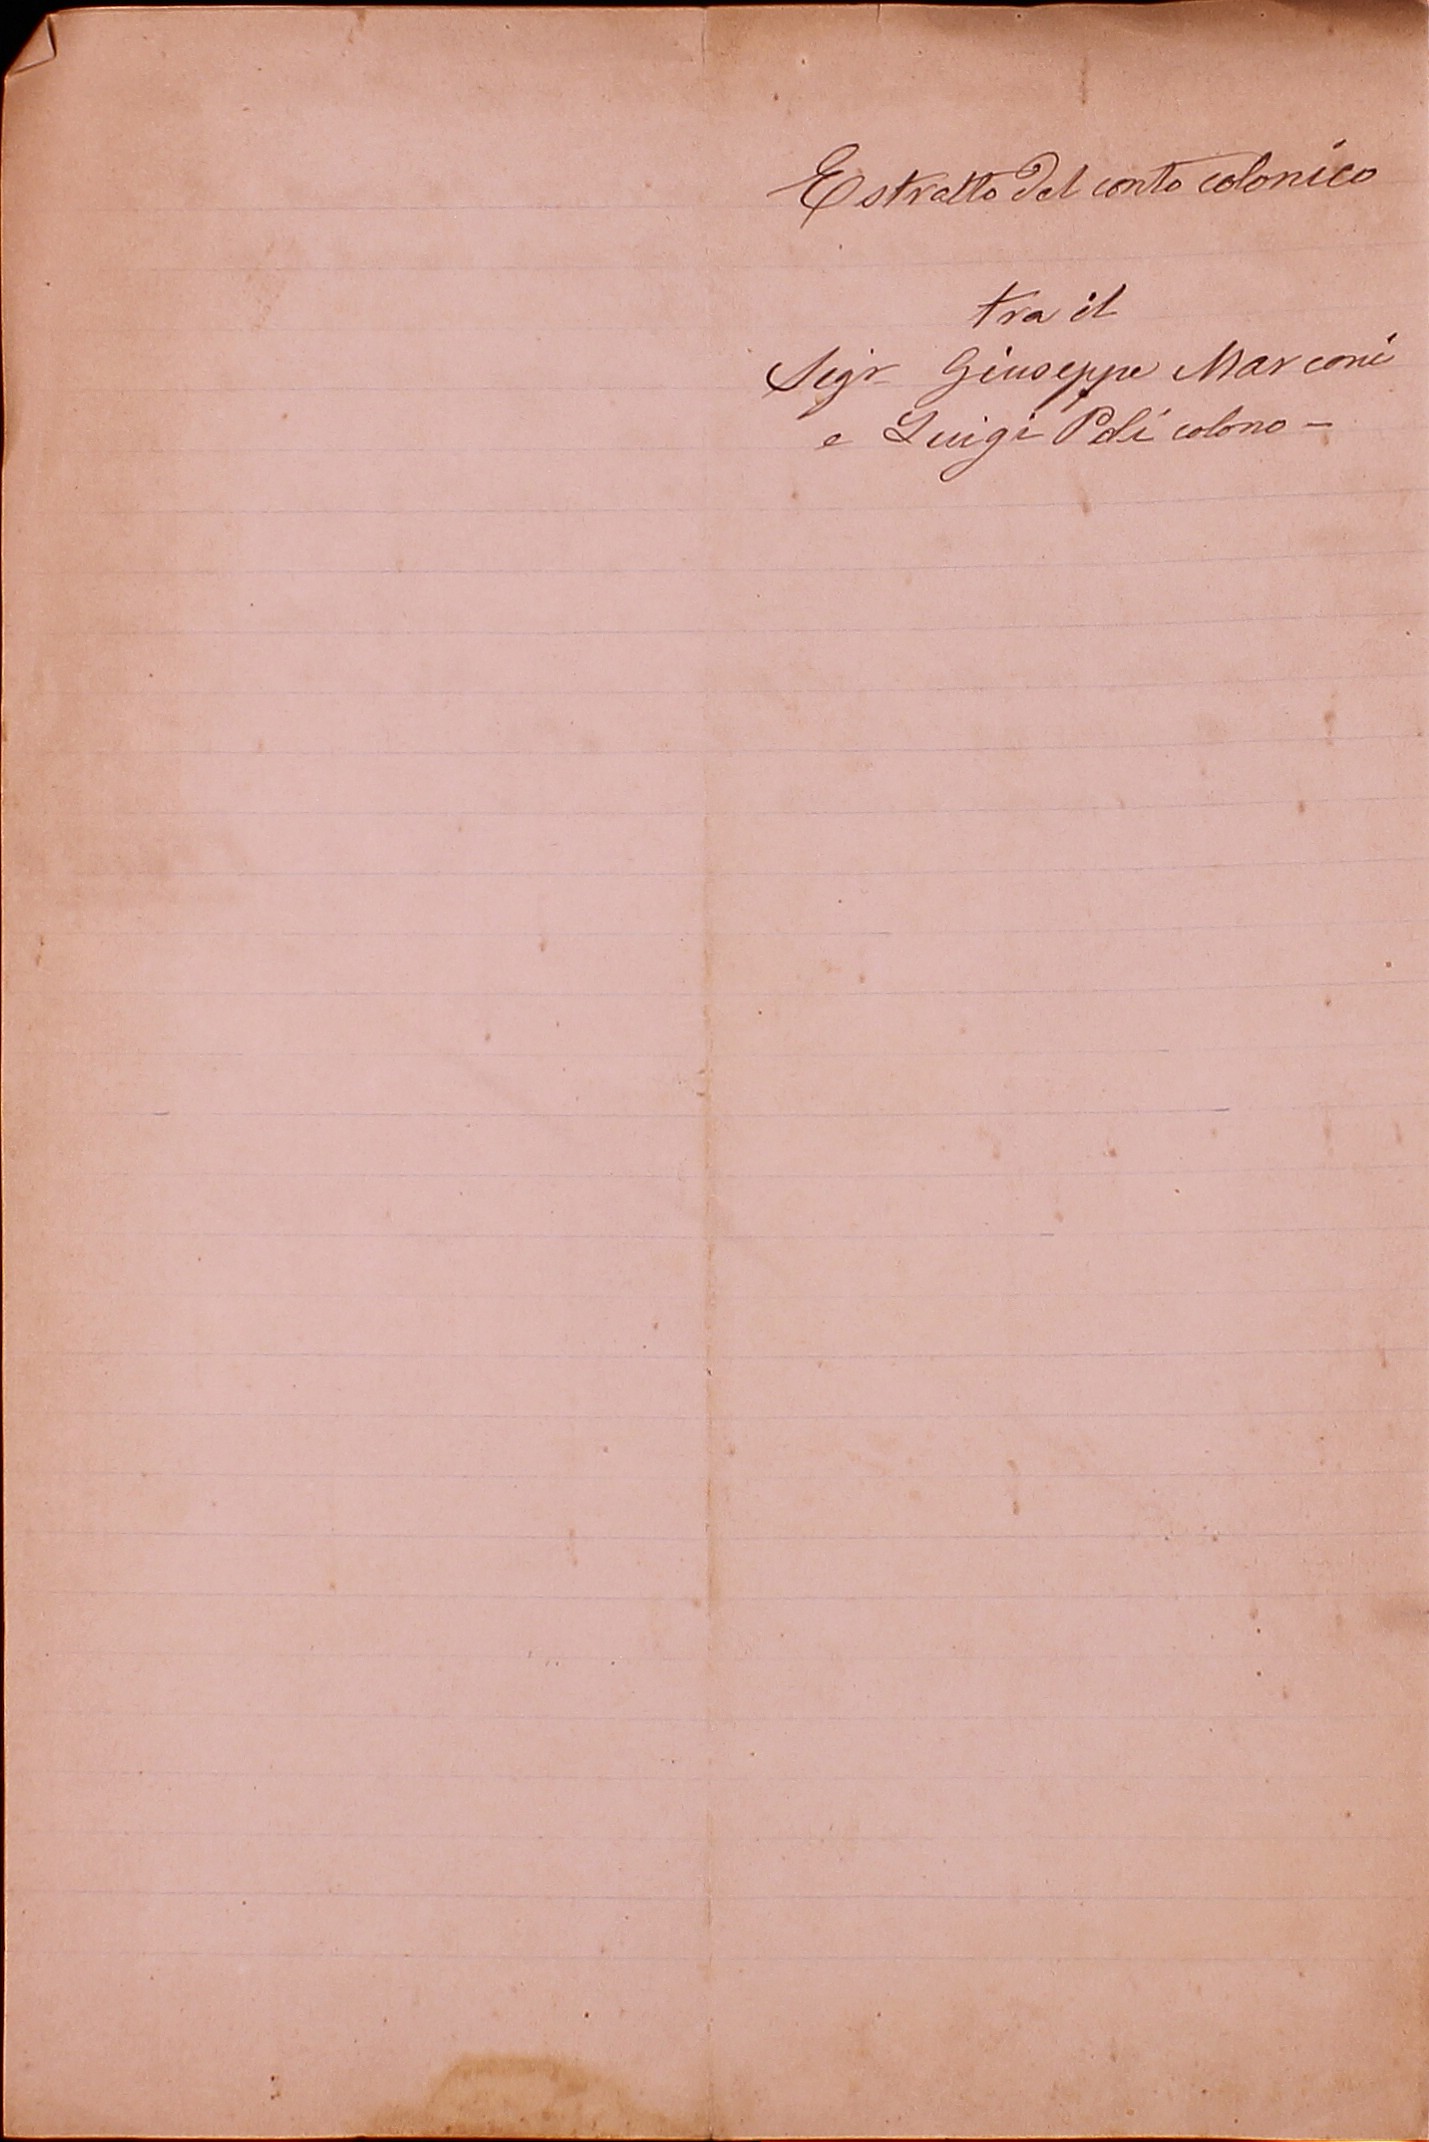 Estratto del conto colonico
tra il
Sigr Giuseppe Marconi
e Luigi Poli colono –